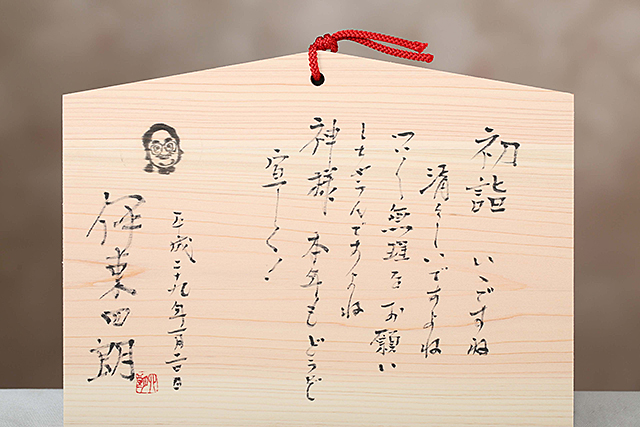 初詣 いいですね
清々しいですよね
ついつい無理をお願い
しちゃうんですよね
神様 本年もどうぞ
宜しく!
平成二十九年一月二日
伊東四朗